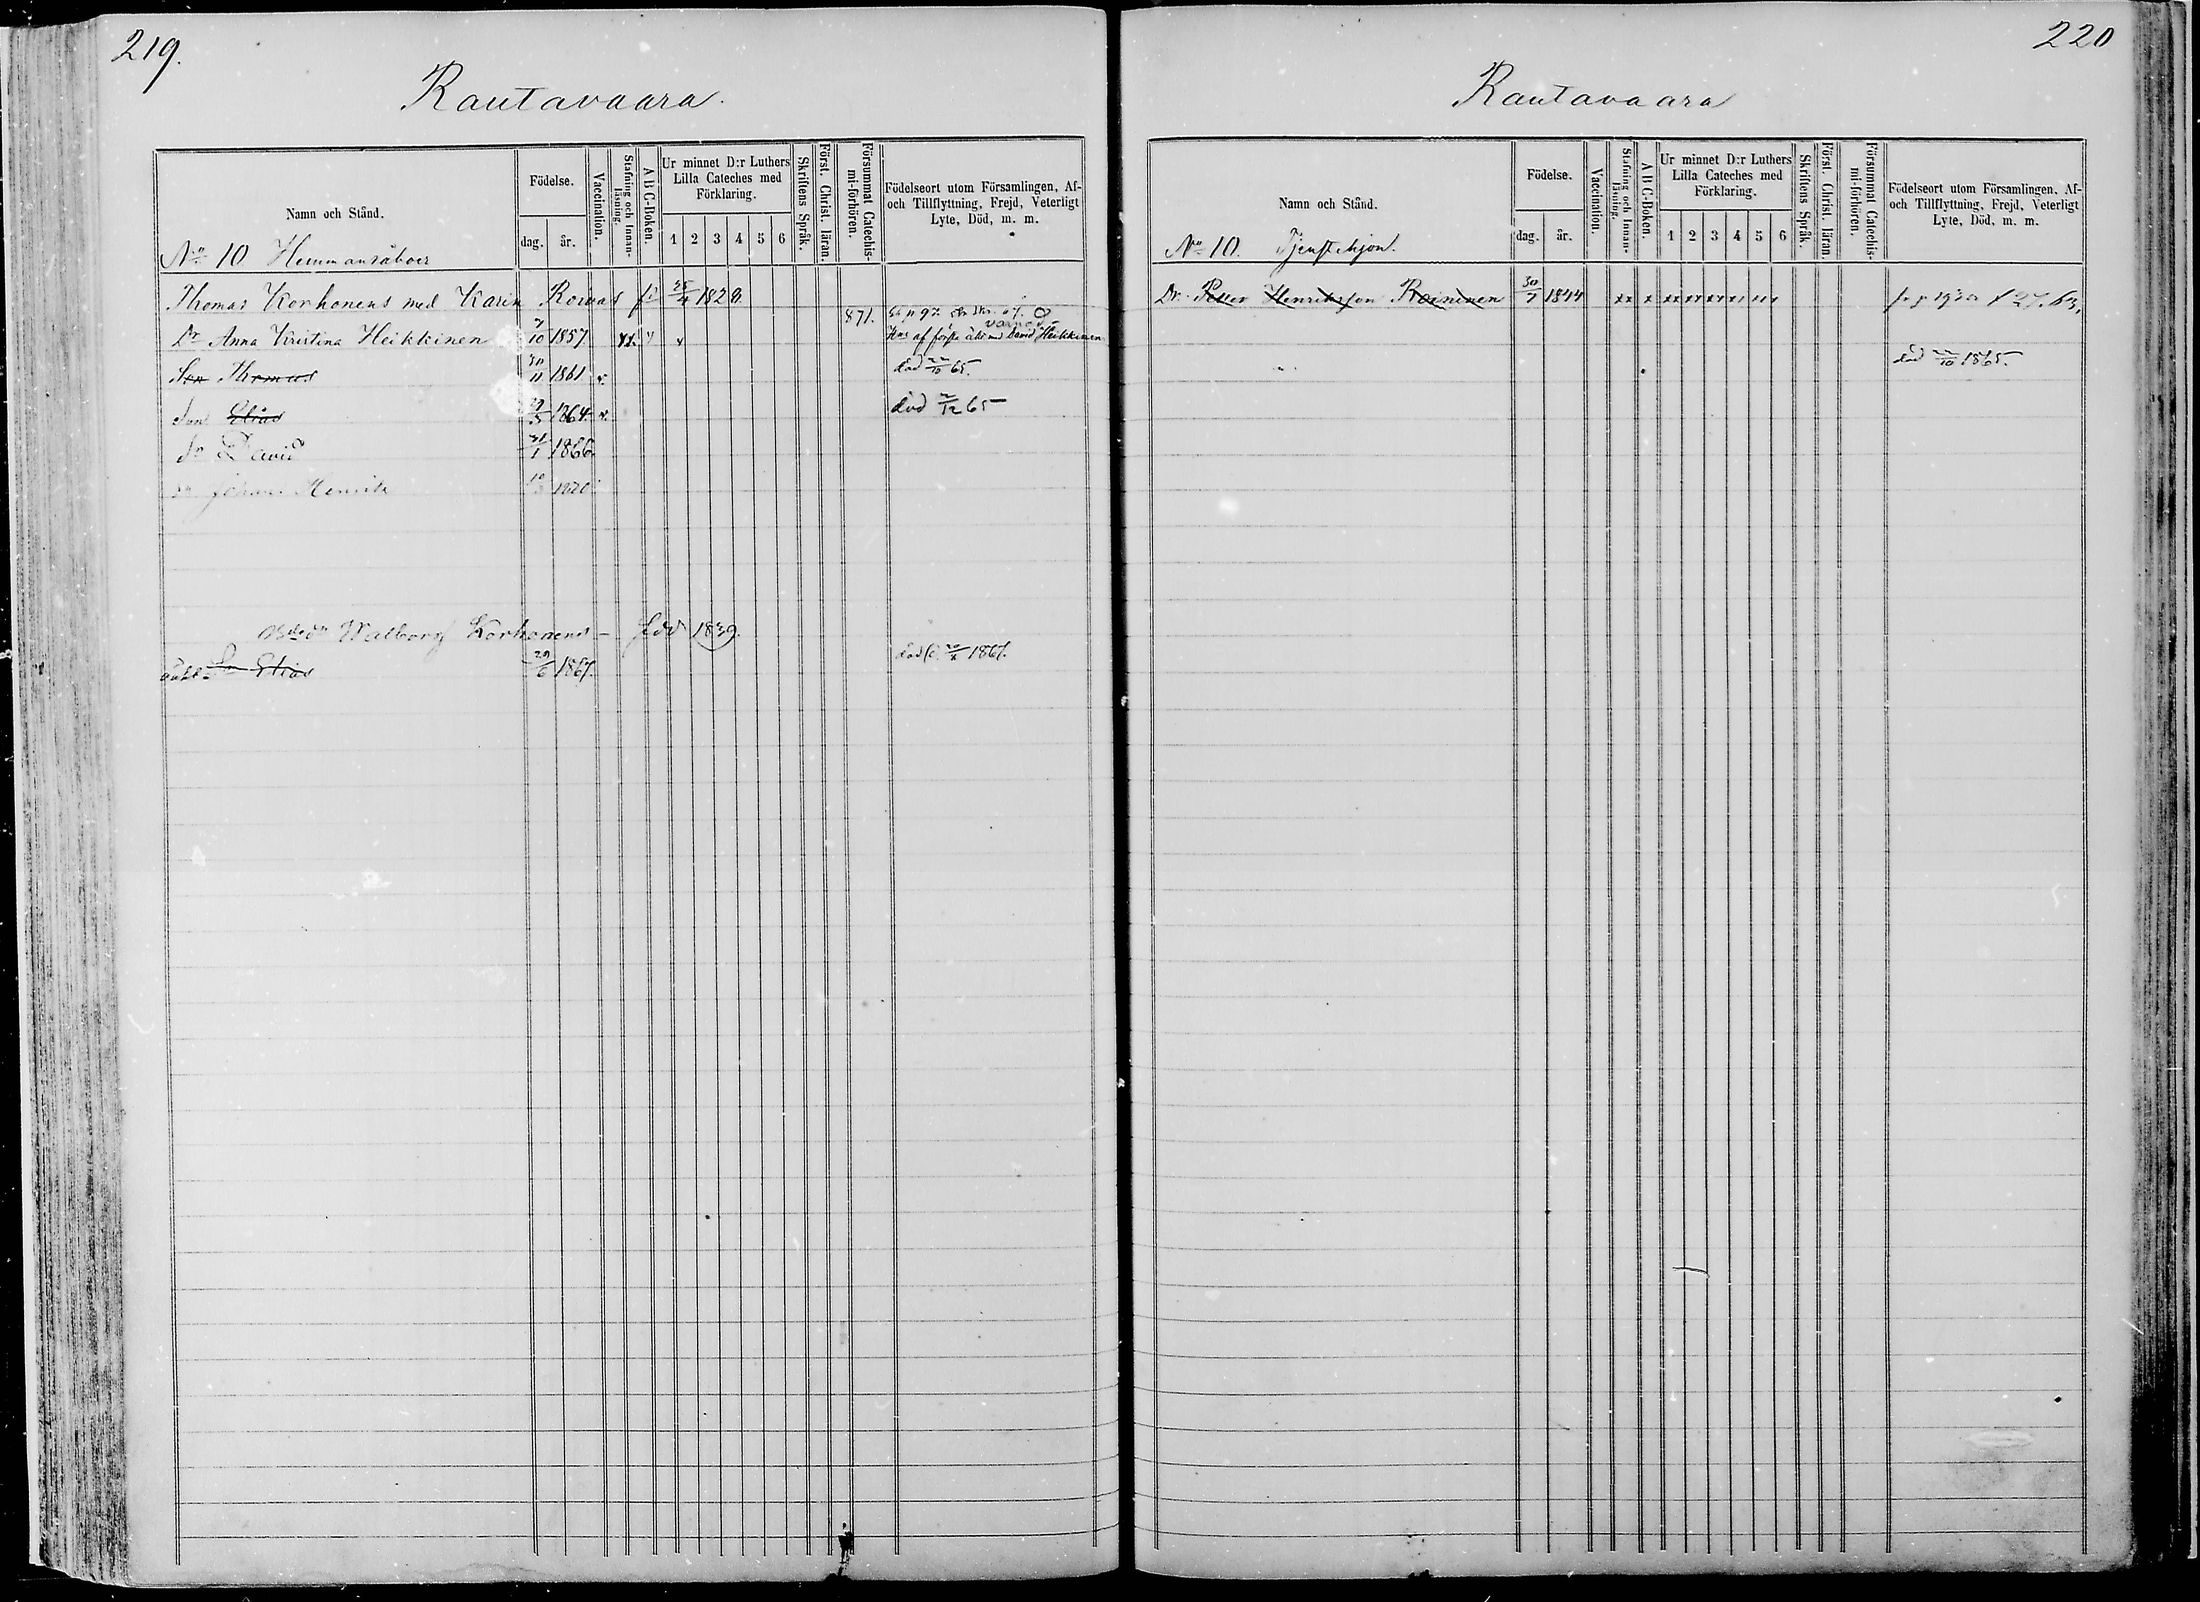 219.
Rautavaara.
Namn och Stånd.
Födelse.
dag. år.
Vaccination.
Stafning och Innanläsning.
A B C-Boken.
Ur minnet D:r Luthers Lilla Cateches med Förklaring.
1 2 3 4 5 6
Skriftens Språk.
Först. Christ. läran.
Försummat Catechismi-förhören.
Födelseort utom Församlingen, Af- och Tillflyttning, Frejd, Veterligt Lyte, Död, m. m.
No 10 Hemmansåboer
Thomas Korhonens med Karin Roivas 25/4 1828
871.
Dr Anna Kristina Heikkinen 7/10 1857 xx
David Heikkinen
Son Thomas 30/11 1861 v. död 22/10 65.
Son Elias 1864 v. död 2/12 65
Sn David 31/1 1866.
Johan Henrik
Walborg Korhonens – född 1839.
oäkt. Sn Elias 29/6 1867. död 1867.
220
Rautavaara
Namn och Stånd.
Födelse.
dag. år.
Vaccination.
Stafning och Innanläsning.
A B C-Boken.
Ur minnet D:r Luthers Lilla Cateches med Förklaring.
1 2 3 4 5 6
Skriftens Språk.
Först. Christ. läran.
Försummat Catechismi-förhören.
Födelseort utom Församlingen, Af- och Tillflyttning, Frejd, Veterligt Lyte, Död, m. m.
No 10. Tjenstehjon.
Dr. Petter Henriksson Roininen 30/7 1844 xx x xx xx xx
död 22/10 1865.